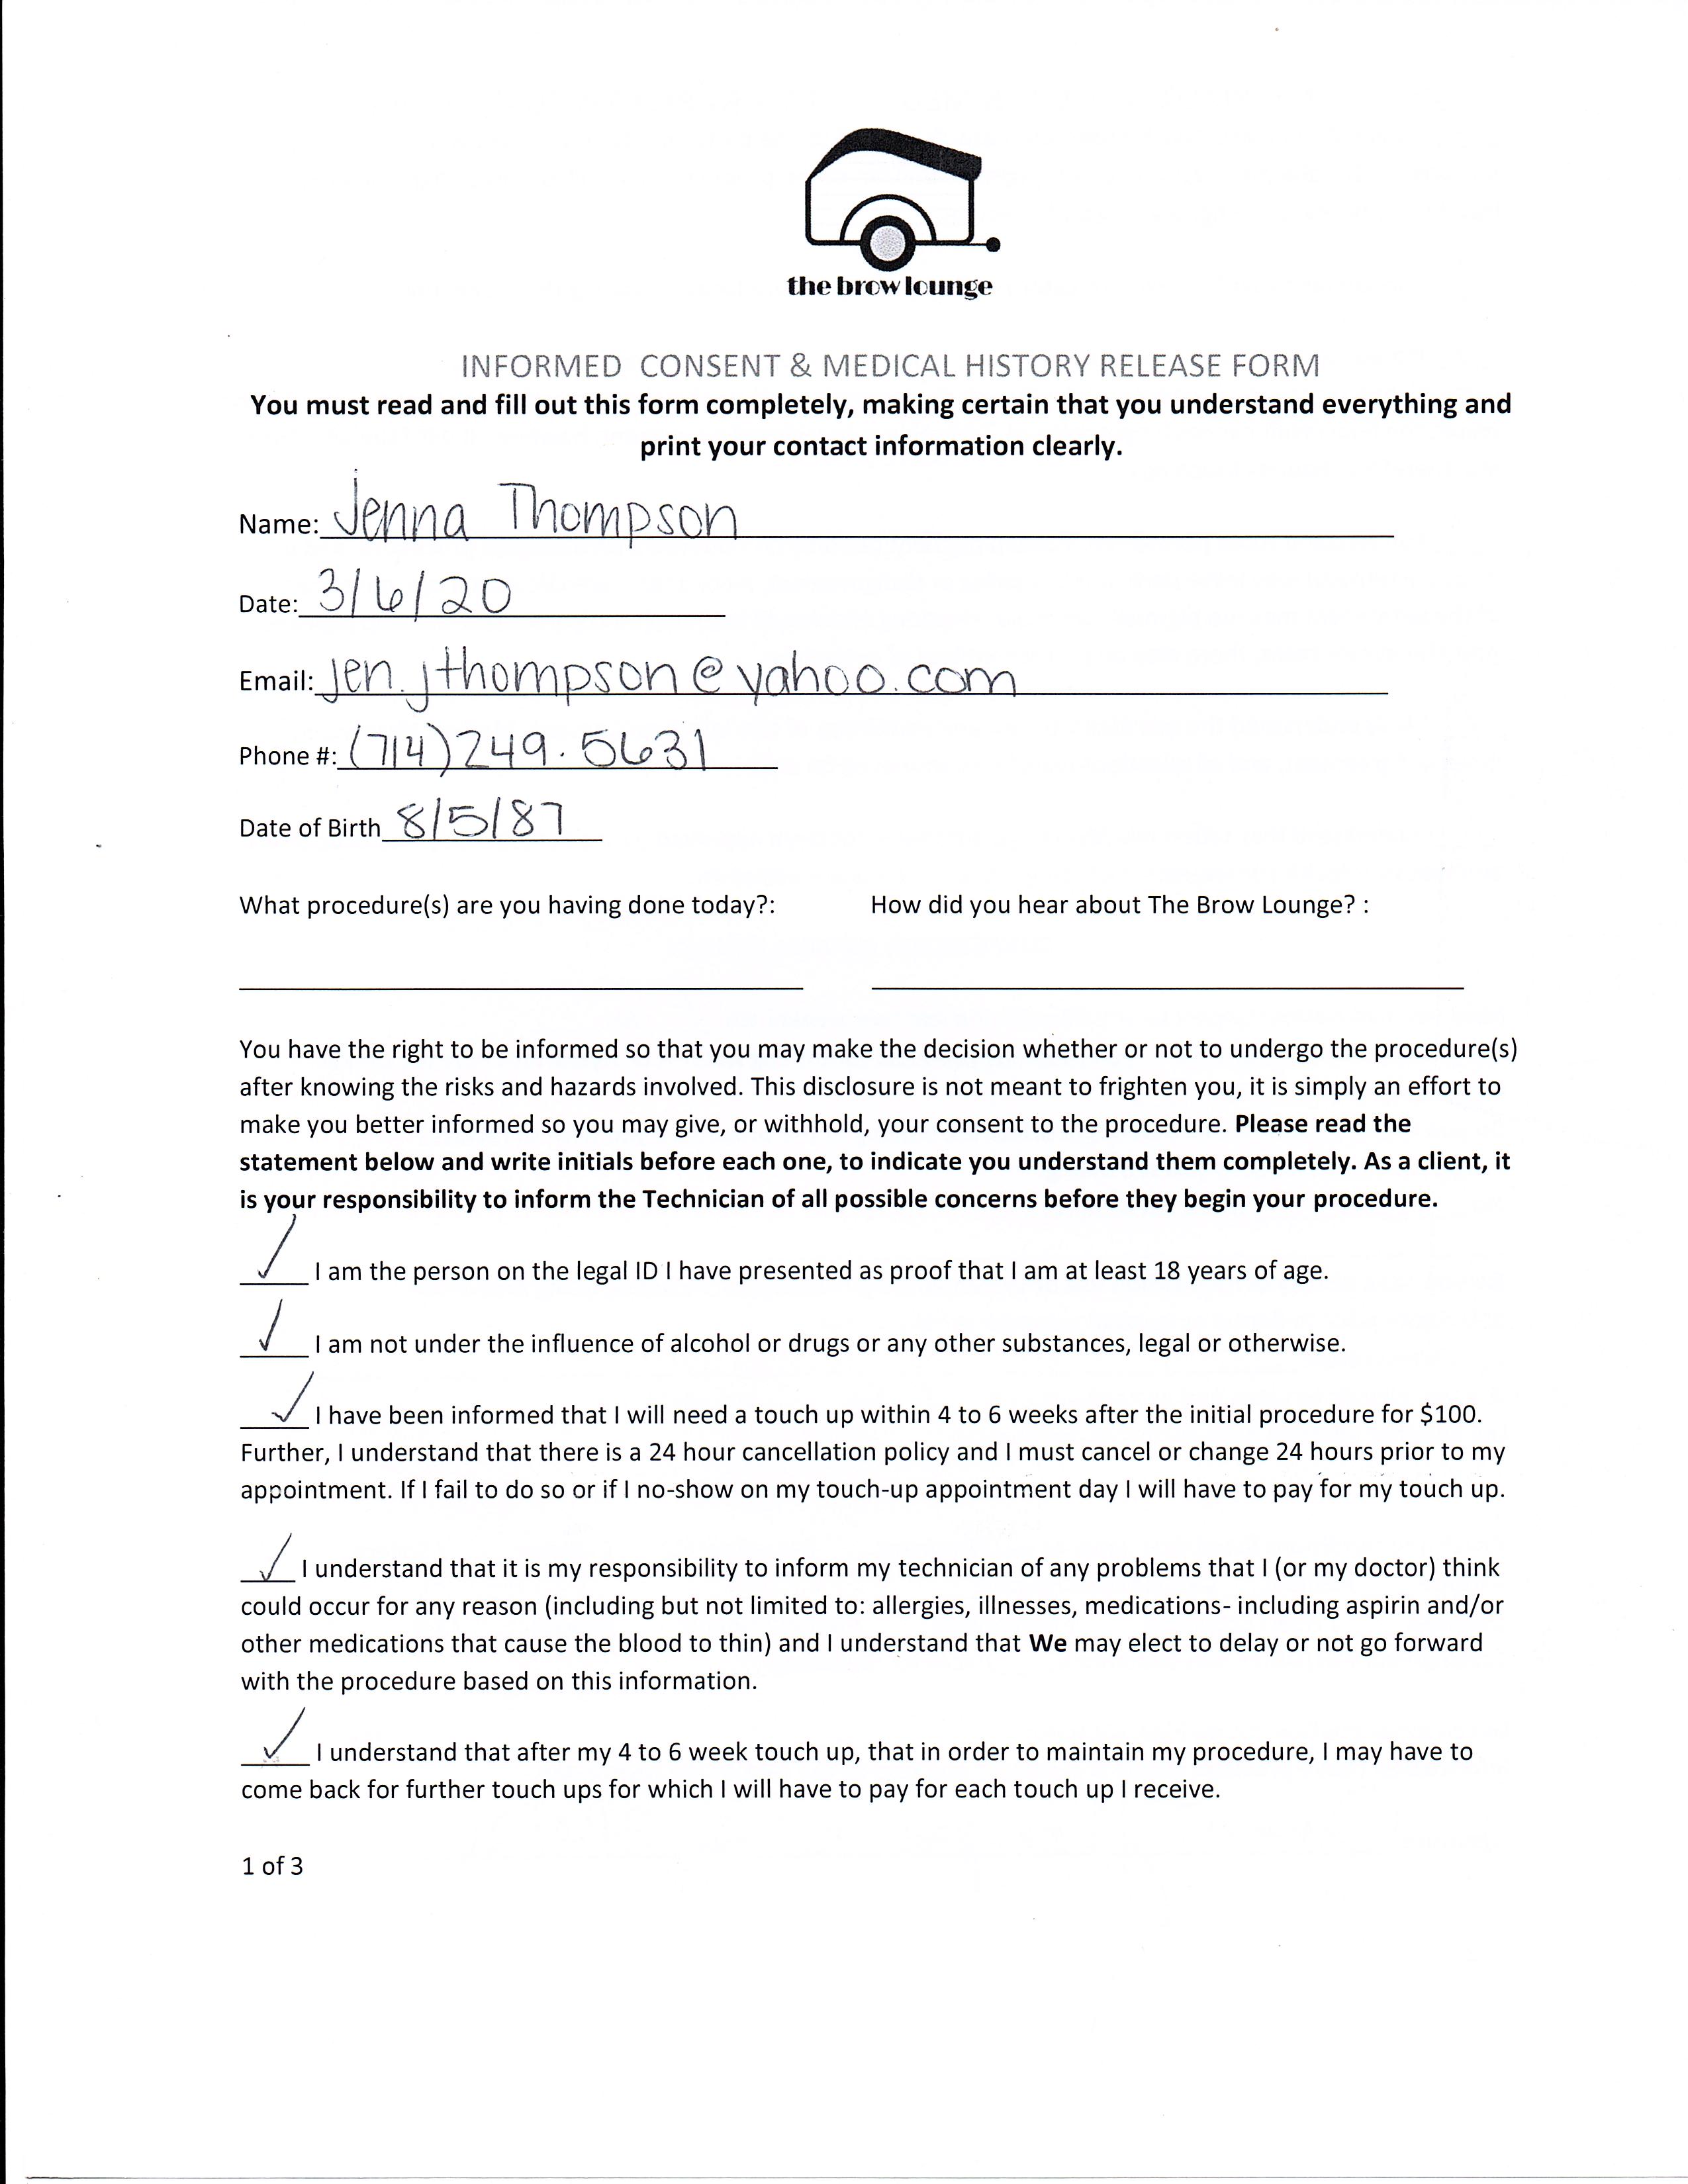 the brow lounge
INFORMED CONSENT & MEDICAL HISTORY RELEASE FORM
You must read and fill out this form completely, making certain that you understand everything and
print your contact information clearly.
Name: Jenna Thompson
Date: 3/6/20
Email: jen.jthompson@yahoo.com
Phone #: (714)249.5631
Date of Birth 8/5/87
What procedure(s) are you having done today?: How did you hear about The Brow Lounge? :
You have the right to be informed so that you may make the decision whether or not to undergo the procedure(s)
after knowing the risks and hazards involved. This disclosure is not meant to frighten you, it is simply an effort to
make you better informed so you may give, or withhold, your consent to the procedure. Please read the
statement below and write initials before each one, to indicate you understand them completely. As a client, it
is your responsibility to inform the Technician of all possible concerns before they begin your procedure.
✓ I am the person on the legal ID I have presented as proof that I am at least 18 years of age.
✓ I am not under the influence of alcohol or drugs or any other substances, legal or otherwise.
✓ I have been informed that I will need a touch up within 4 to 6 weeks after the initial procedure for $100.
Further, I understand that there is a 24 hour cancellation policy and I must cancel or change 24 hours prior to my
appointment. If I fail to do so or if I no-show on my touch-up appointment day I will have to pay for my touch up.
✓ I understand that it is my responsibility to inform my technician of any problems that I (or my doctor) think
could occur for any reason (including but not limited to: allergies, illnesses, medications- including aspirin and/or
other medications that cause the blood to thin) and I understand that We may elect to delay or not go forward
with the procedure based on this information.
✓ I understand that after my 4 to 6 week touch up, that in order to maintain my procedure, I may have to
come back for further touch ups for which I will have to pay for each touch up I receive.
1 of 3